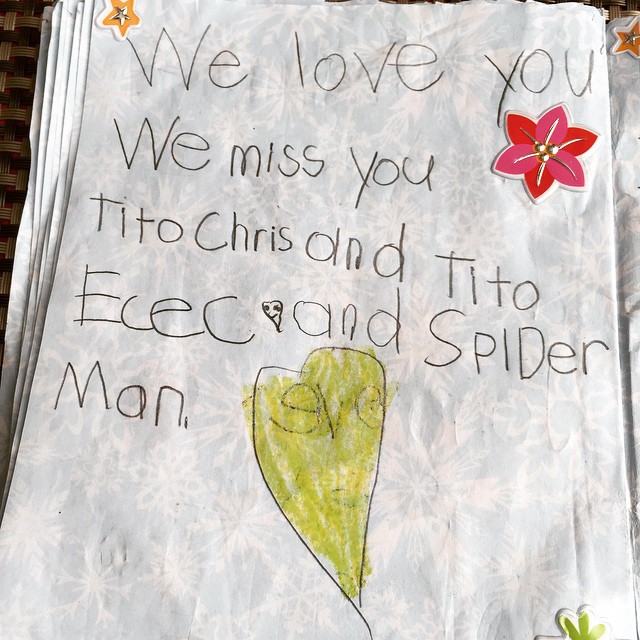 We love you
We miss you
Tito Chris and Tito
Ecec and SpIDer
Man.
Love